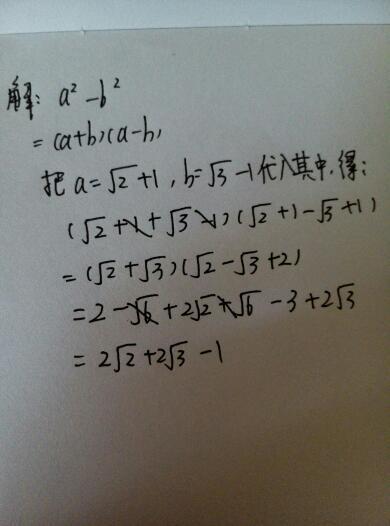 解: a²-b²
=(a+b)(a-b)
把a=√2+1,b=√3-1代入其中,得:
(√2+1+√3-1)(√2+1-√3+1)
=(√2+√3)(√2-√3+2)
=2-√6+2√2+√6-3+2√3
=2√2+2√3-1